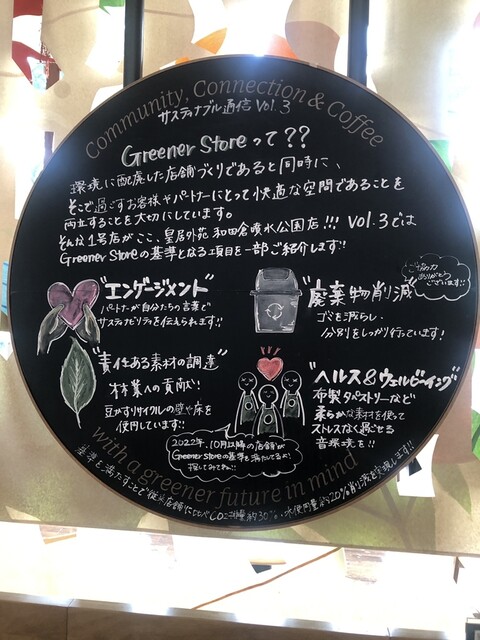 Community, Connection & Coffee
サスティナブル通信 Vol.3
Greener Storeって??
環境に配慮した店舗づくりであると同時に、
そこで過ごすお客様やパートナーにとって快適な空間であることを
両立することを大切にしています。
そんな1号店がここ、皇居外苑 和田倉噴水公園店!!! Vol.3では
Greener Storeの基準となる項目を一部ご紹介します!!
"エンゲージメント"
パートナーが自分たちの言葉で
サスティナビリティを伝えられます!!
"廃棄物削減"
ゴミを減らし、
分別をしっかり行っています!
ご協力
ありがとう
ございます!!
"責任ある素材の調達"
林業への貢献!
豆かすリサイクルの壁や床を
使用しています!!
"ヘルス&ウェルビーイング"
布製タペストリーなど
柔らかな素材を使って
ストレスなく過ごせる
音環境を!!
2022年、10月以降の店舗が
Greener Storeの基準を満たしてるよ!
探してみてね!!
with a greener future in mind
基準を満たすことで従来店舗に比べCO2排出量約30%、水使用量約20%削減を実現します!!